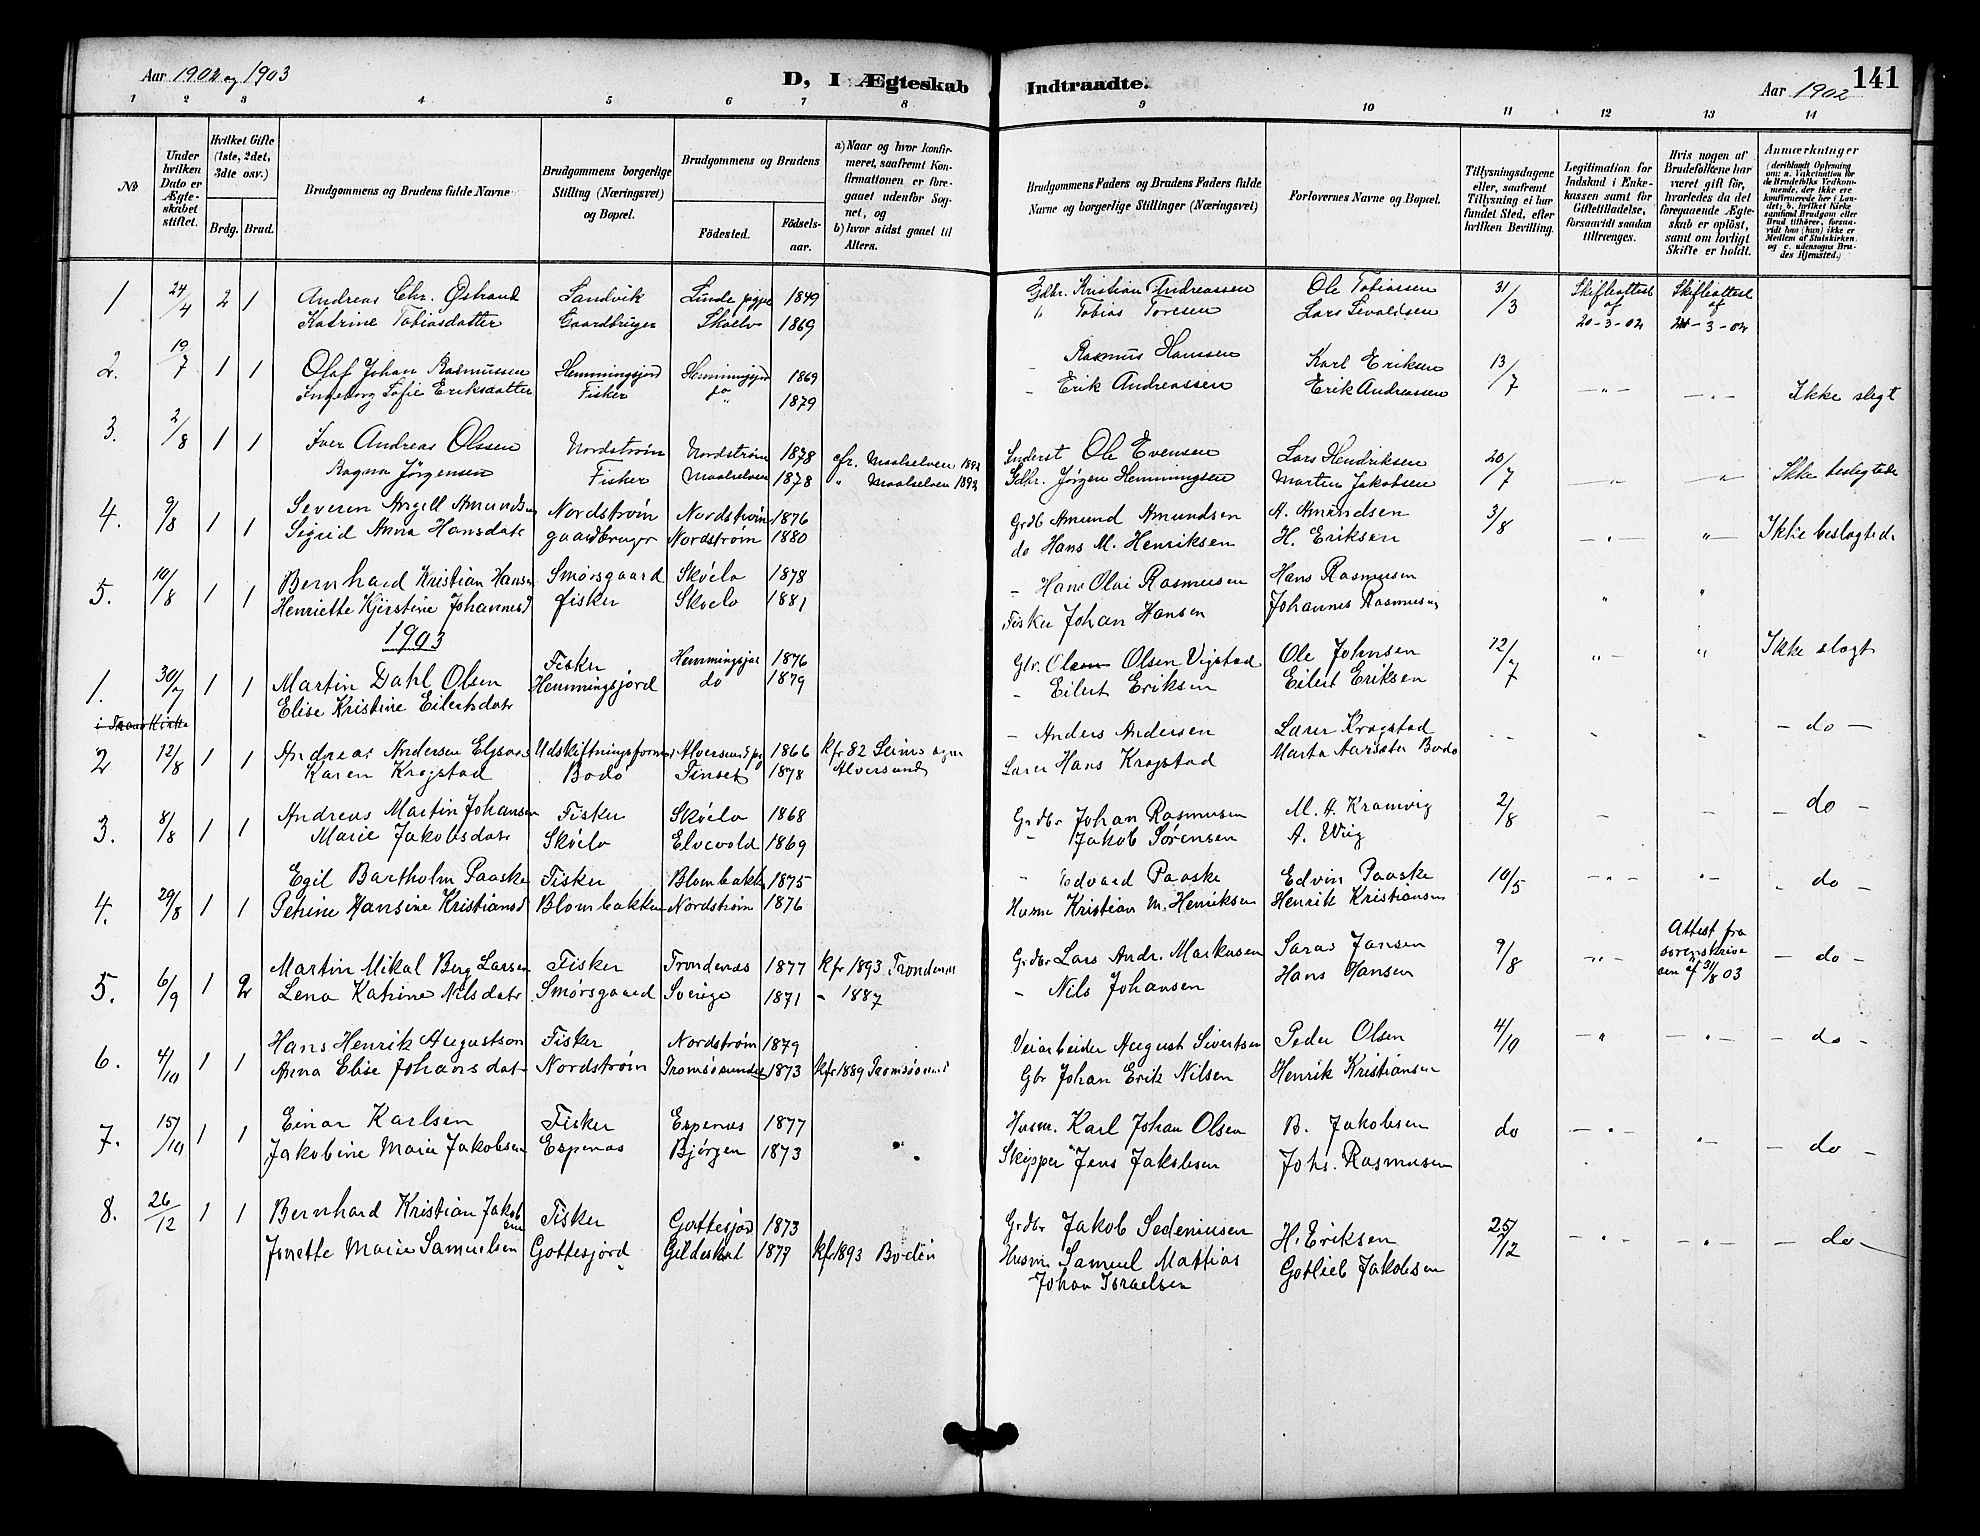 Aar 1902 og 1903
D, I Ægteskab Indtraadte.
Aar 1902
141
1 2 3 4 5 6 7 8 9 10 11 12 13 14
No
Under hvilken Dato er Ægteskabet stiftet.
Hvilket Gifte (1ste, 2det, 3dte osv.)
Brdg. Brud.
Brudgommens og Brudens fulde Navne
Brudgommens borgerlige Stilling (Næringsvei) og Bopæl.
Brudgommens og Brudens
Födested.
Födsels-aar.
a) Naar og hvor konfirmeret, saafremt Konfirmationen er foregaaet udenfor Sognet, og
b) hvor sidst gaaet til Alters.
Brudgommens Faders og Brudens Faders fulde Navne og borgerlige Stillinger (Næringsvei)
Forlovernes Navne og Bopæl.
Tillysningsdagene eller, saafremt Tillysning ei har fundet Sted, efter hvilken Bevilling.
Legitimation for Indskud i Enkekassen samt for Giftetilladelse, forsaavidt saadan tiltrænges.
Hvis nogen af Brudefolkene har været gift før, hvorledes da det foregaaende Ægteskab er opløst, samt om lovligt Skifte er holdt.
Anmærkninger (deriblandt Oplysning om: a. Vakcination for de Brudefolks Vedkommende, der ikke ere konfirmerede her i Landet; b. hvilket Kirkesamfund Brudgom eller Brud tilhører, forsaavidt han (hun) ikke er Medlem af Statskirken, og c. udensogns Brudes Hjemsted.)
1 24/4 2 1 Andreas Chr. Østrand Sandvik 1849 Gdbr. Kristian Andreassen Ole Tobiassen 31/3 Skifteattest af 20-3-02 Skifteattest af 20-3-02
Katrine Tobiasdatter Gaardbruger Skoelv 1869 " Tobias Toresen Lars Sivaldsen
2. 19/7 1 1 Olaf Johan Rasmussen Hemmingsjord Hemmingsjord 1869 Rasmus Hanssen Karl Eriksen 13/7 Ikke slegt
Ingeborg Sofie Eriksdatter Fisker do 1879 - Erik Andreassen Erik Andreassen
3. 2/8 1 1 Iver Andreas Olssen Nordstrøm Nordstrøm 1878 cfr. Maalselven 1892 Inderst Ole Evensen Lars Hendriksen 20/7 Ikke beslegtede
Ragna Jørgensen Fisker Maalselven 1878 " Maalselven 1892 Gdbr. Jørgen Hemmingsen Martin Jakobsen
4. 9/8 1 1 Severin Angell Amundsen Nordstrøm Nordstrøm 1876 Grdb Amund Amundsen A. Amundsen 3/8 Ikke beslegted.
Sigrid Anna Hansdatr gaardbruger Nordstrøm 1880 do Hans M. Henriksen H. Eriksen
5. 10/8 1 1 Bernhard Kristian Hansen Smörsgaard Sköelv 1878 - Hans Olai Rasmusen Hans Rasmusen
Henriette Kjirstine Johannesd fisker Skoelv 1881 Fisker Johan Hansen Johannes Rasmusen
1903
1. 30/7 1 1 Martin Dahl Olsen Fisker Hemmingsjor 1876 Gbr. Olsen Olsen Vigstad Ole Johnsen 12/7 Ikke slegt
Elise Kristine Eilertsdatr Hemmingsjord do 1879 - Eilert Eriksen Eilert Eriksen
2 12/8 1 1 Andreas Andersen Alversund pg 1866 kfr 82 Seims sogn - Anders Andersen Larer Krogstad - do -
Karen Krogstad Bodö Tinset 1878 Alversund Larer Hans Krogstad Marta Bodö
3. 8/8 1 1 Andreas Martin Johansen Fisker Sköelv 1868 Grdbr Johan Rasmusen M. A. Kramvig 2/8 do -
Marie Jakobsdatr Sköelv Elvevold 1869 " Jakob Sørensen A. Wiig
4. 29/8 1 1 Egil Bartholm Paaske Fisker Blombakk 1875 " Edvard Paaske Edvin Paaske 10/5 - do -
Petrine Hansine Kristiansd Blombakken Nordstrøm 1876 Husm Kristian M. Henriksen Henrik Kristiansen
5. 6/9 1 2 Martin Mikal Berg Larsen Fisker Trondenæs 1877 kfr 1893 Trondenæs Grdbr Lars Andr. Markusen Jansen 9/8 Attest fra sorenskriveren af 31/8 03 - do -
Lena Katrine Nilsdatr Smörsgaard Sverige 1871 - 1887 - Nils Johansen Hans Hansen
6. 4/10 1 1 Hans Henrik Augustson Fisker Nordstrøm 1879 Veiarbeider August Sivertsen Peder Olsen 4/10 - do -
Anna Elise Johansdatr Nordstrøm Tromsösundet 1873 kfr 1889 Tromsösund Gbr Johan Erik Nilsen Henrik Kristiansen
7. 15/10 1 1 Einar Karlsen Fisker Espenæs 1877 Husm. Karl Johan Olsen B. Jakobsen do - do -
Jakobine Marie Jakobsen Espenæs Bjørgen 1873 Skipper Jens Jakobsen Johs. Rasmusen
8. 26/12 1 1 Bernhard Kristian Jakobsen Fisker Gottesjord 1873 Grdbr Jakob Sedeniusen H. Eriksen 25/12 - do -
Jonette Marie Samuelsen Gottesjord Gildeskal 1879 kfr 1893 Bodin Husm. Samuel Mattias Johan Israelsen Gotlieb Jakobsen